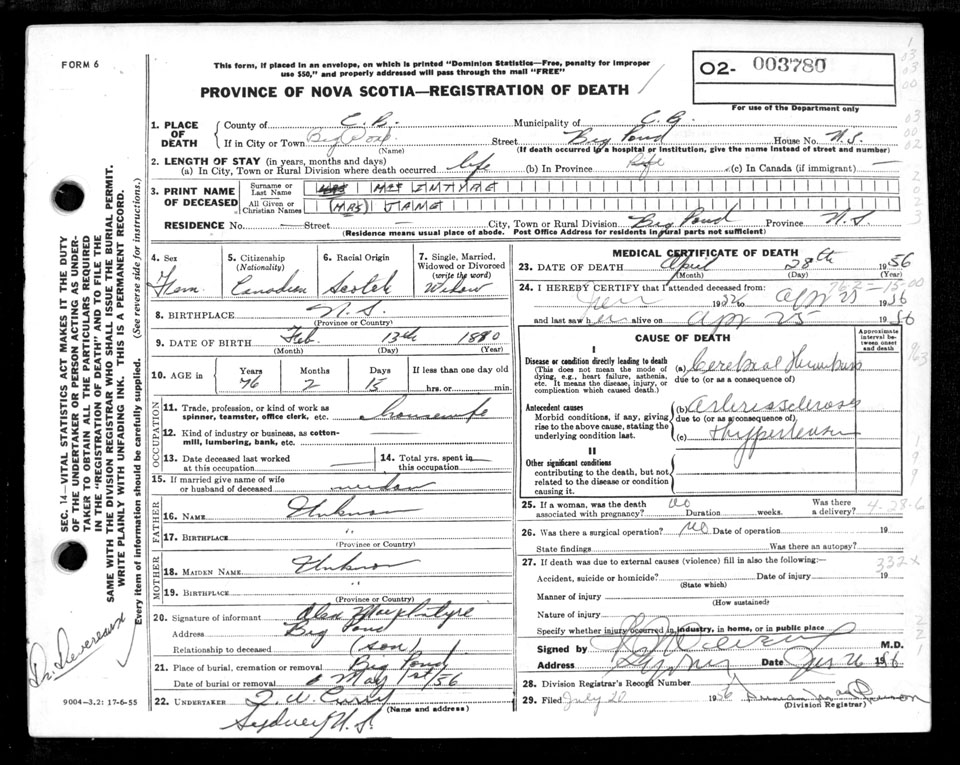 FORM 6
This form, if placed in an envelope, on which is printed "Dominion Statistics—Free, penalty for improper
use $50," and properly addressed will pass through the mail "FREE"
O2- 003780
For use of the Department only
PROVINCE OF NOVA SCOTIA—REGISTRATION OF DEATH
1. PLACE OF DEATH
County of C.B. Municipality of C.B.
If in City or Town Street Big Pond House No. N.S.
(Name) (If death occurred in a hospital or institution, give the name instead of street and number)
2. LENGTH OF STAY (in years, months and days)
(a) In City, Town or Rural Division where death occurred life (b) In Province life (c) In Canada (if immigrant) —
3. PRINT NAME OF DECEASED
Surname or Last Name MAC INTYRE
All Given or Christian Names (MRS) JANE
RESIDENCE No. — Street — City, Town or Rural Division Big Pond Province N.S
(Residence means usual place of abode. Post Office Address for residents in rural parts not sufficient)
4. Sex
Fem.
5. Citizenship
(Nationality)
Canadian
6. Racial Origin
Scotch
7. Single, Married,
Widowed or Divorced
(write the word)
Widow
8. BIRTHPLACE N.S.
(Province or Country)
9. DATE OF BIRTH Feb. 13th 1880
(Month) (Day) (Year)
10. AGE IN
Years Months Days If less than one day old
76 2 15 hrs. or min.
OCCUPATION
11. Trade, profession, or kind of work as
spinner, teamster, office clerk, etc. housewife
12. Kind of industry or business, as cotton-
mill, lumbering, bank, etc.
13. Date deceased last worked
at this occupation
14. Total yrs. spent in
this occupation
15. If married give name of wife
or husband of deceased widow
FATHER
16. NAME Unknown
17. BIRTHPLACE "
(Province or Country)
MOTHER
18. MAIDEN NAME Unknown
19. BIRTHPLACE "
(Province or Country)
20. Signature of informant Alex MacIntyre
Address Big Pond
Relationship to deceased (son)
21. Place of burial, cremation or removal Big Pond
Date of burial or removal May 1st/56
22. UNDERTAKER T. W. Curry
(Name and address)
Sydney N.S.
MEDICAL CERTIFICATE OF DEATH
23. DATE OF DEATH April 28th 1956
(Month) (Day) (Year)
24. I HEREBY CERTIFY that I attended deceased from:
76-2-15-00
19 to Apr 25 1956
and last saw her alive on Apr 25 1956
CAUSE OF DEATH
Approximate interval between onset and death
I
Disease or condition directly leading to death
(This does not mean the mode of
dying, e.g., heart failure, asthenia,
etc. It means the disease, injury, or
complication which caused death.)
(a) Cerebral Thrombosis
due to (or as a consequence of)
Antecedent causes
Morbid conditions, if any, giving
rise to the above cause, stating the
underlying condition last.
(b) Arteriosclerosis
due to (or as a consequence of)
(c) Hypertension
II
Other significant conditions
contributing to the death, but not
related to the disease or condition
causing it.
25. If a woman, was the death
associated with pregnancy? no Duration weeks. Was there a delivery?
4-28-6
26. Was there a surgical operation? no Date of operation 19
State findings Was there an autopsy?
27. If death was due to external causes (violence) fill in also the following:—
332X
Accident, suicide or homicide? Date of injury 19
(State which)
Manner of injury
(How sustained)
Nature of injury
Specify whether injury occurred in industry, in home, or in public place
Signed by M.D.
Address Sydney Date 26 1956
28. Division Registrar's Record Number
29. Filed July 20 1956
(Division Registrar)
9004—3.2: 17-6-55
SEC. 14—VITAL STATISTICS ACT MAKES IT THE DUTY
OF THE UNDERTAKER OR PERSON ACTING AS UNDER-
TAKER TO OBTAIN ALL THE PARTICULARS REQUIRED
IN THE "REGISTRATION OF DEATH" AND TO FILE THE
SAME WITH THE DIVISION REGISTRAR WHO SHALL ISSUE THE BURIAL PERMIT.
WRITE PLAINLY WITH UNFADING INK. THIS IS A PERMANENT RECORD.
Every item of information should be carefully supplied. (See reverse side for instructions.)
Dr. Devereaux